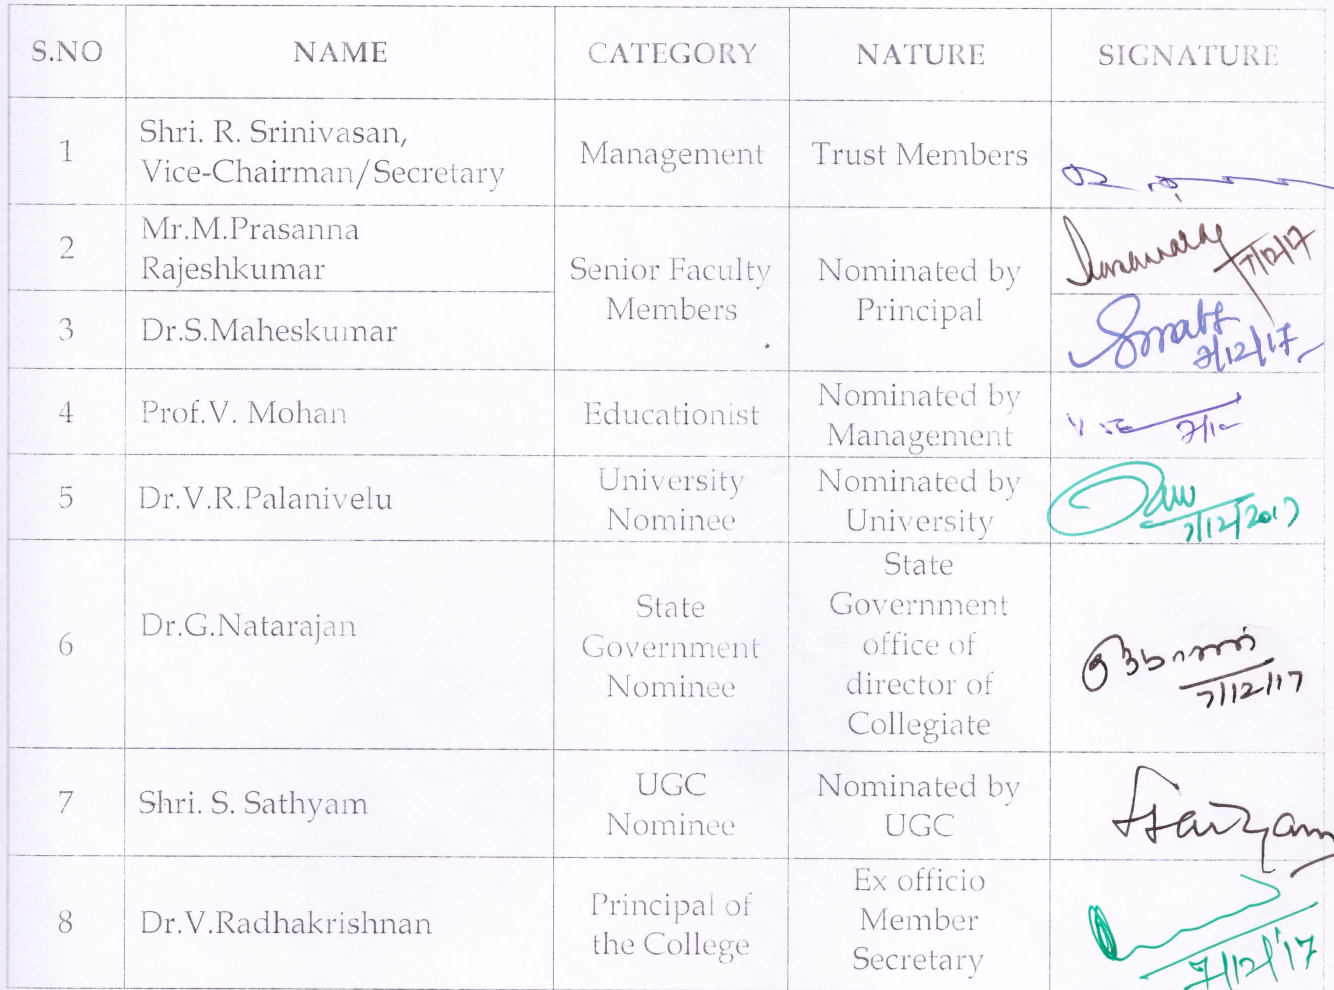 S.NO NAME CATEGORY NATURE SIGNATURE
1
Shri. R. Srinivasan,
Vice-Chairman/Secretary
Management
Trust Members
2
Mr.M.Prasanna
Rajeshkumar
Senior Faculty
Members
Nominated by
Principal
7/12/17
3
Dr.S.Maheskumar
7/12/17
4
Prof.V. Mohan
Educationist
Nominated by
Management
5
Dr.V.R.Palanivelu
University
Nominee
Nominated by
University
7/12/2017
6
Dr.G.Natarajan
State
Government
Nominee
State
Government
office of
director of
Collegiate
7/12/17
7
Shri. S. Sathyam
UGC
Nominee
Nominated by
UGC
8
Dr.V.Radhakrishnan
Principal of
the College
Ex officio
Member
Secretary
7/12/'17